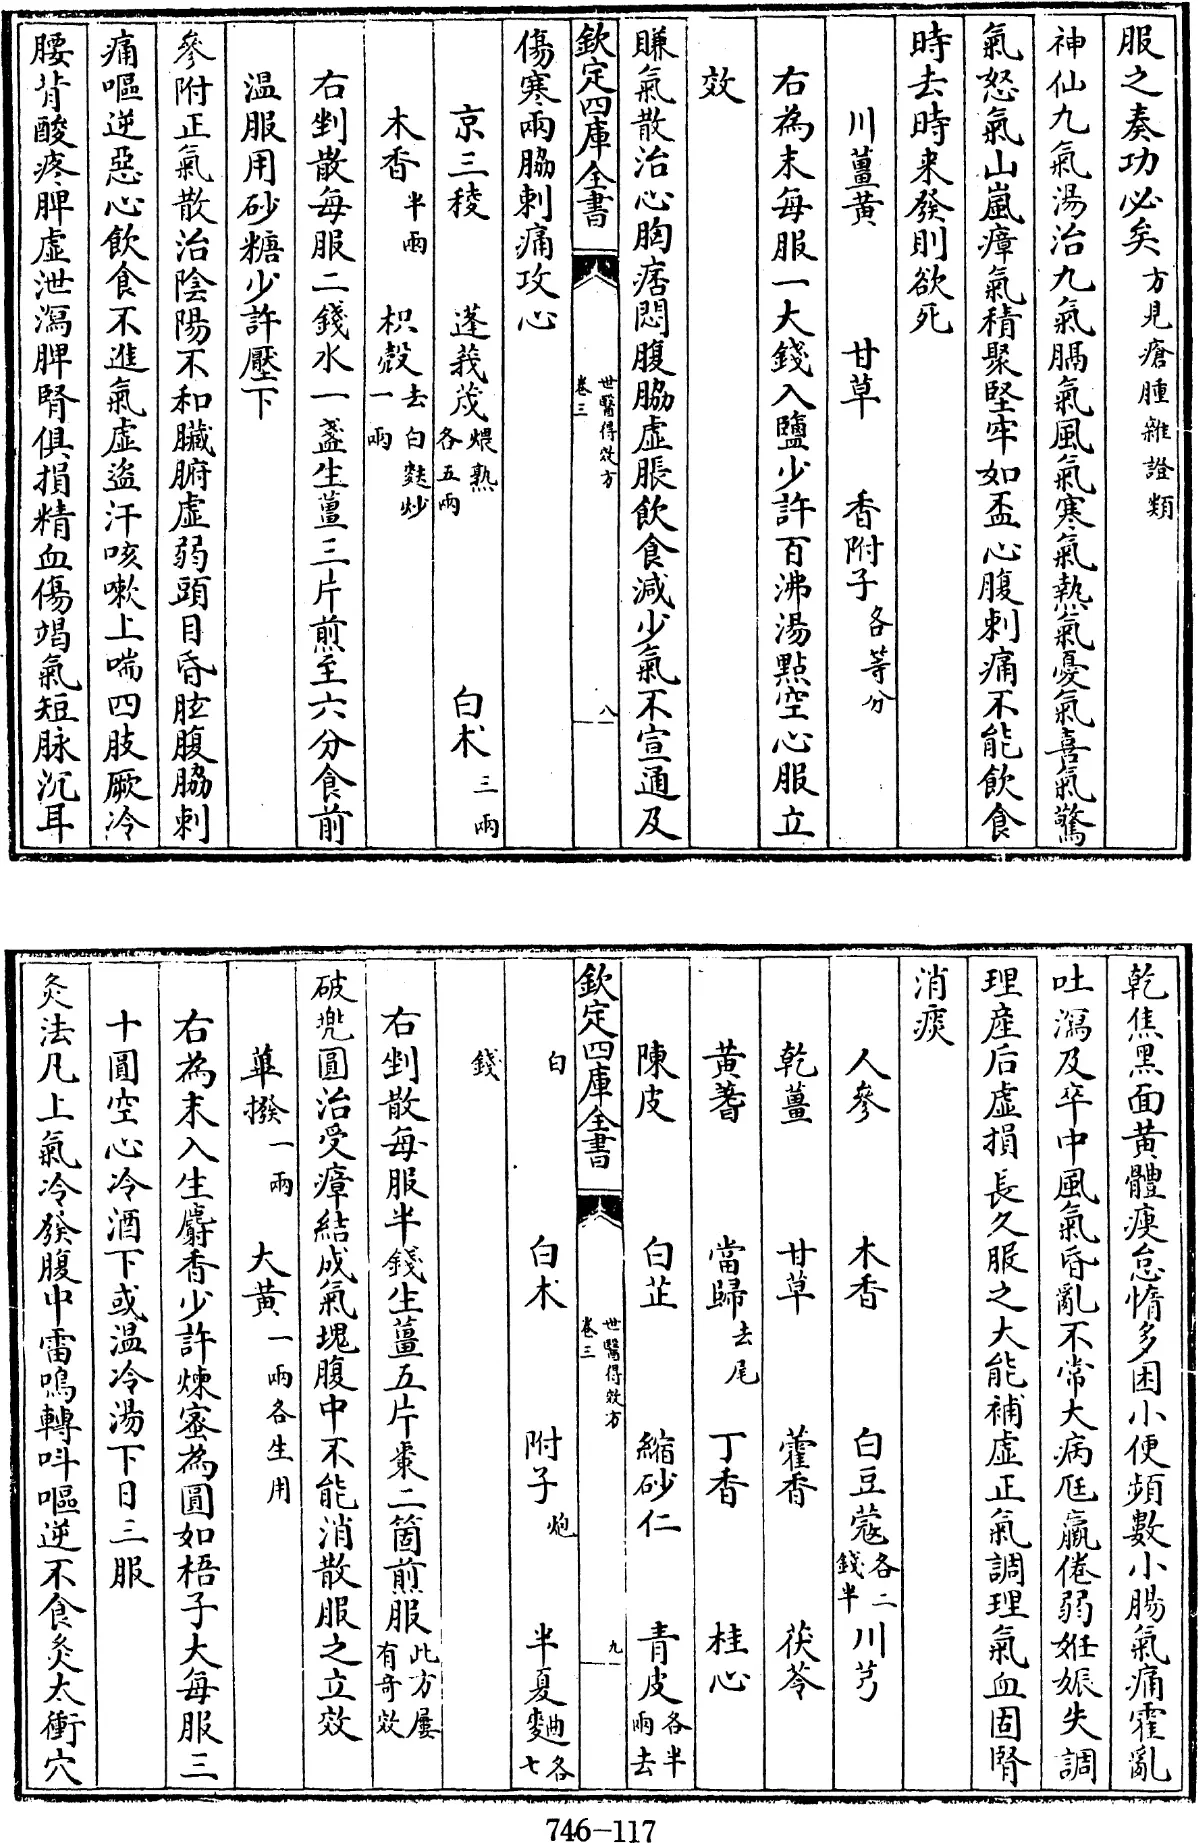 服之奏功必矣方見瘡腫雜證類
神仙九氣湯治九氣膈氣風氣寒氣熱氣憂氣喜氣驚
氣怒氣山嵐瘴氣積聚堅牢如盃心腹刺痛不能飲食
時去時来發則欲死
川薑黄 甘草 香附子各等分
右為末每服一大錢入鹽少許百沸湯點空心服立
效
𦡀氣散治心胸痞悶腹脇虚脹飲食減少氣不宣通及
欽定四庫全書 世醫得效方 卷三 八
傷寒兩脇刺痛攻心
京三稜 蓬莪茂煨熟各五兩 白术三兩
木香半兩 枳殻去白麩炒一兩
右剉散每服二錢水一盞生薑三片煎至六分食前
温服用砂糖少許壓下
參附正氣散治陰陽不和臟腑虚弱頭目昏眩腹脇刺
痛嘔逆惡心飲食不進氣虚盗汗咳嗽上喘四肢厥冷
腰背酸疼脾虚泄瀉脾腎俱損精血傷竭氣短脉沉耳
乾焦黒面黄體瘦怠惰多困小便頻數小腸氣痛霍亂
吐瀉及卒中風氣昏亂不常大病尫羸倦弱妊娠失調
理産后虚損長久服之大能補虚正氣調理氣血固腎
消痰
人參 木香 白豆蔻各二錢半 川芎
乾薑 甘草 藿香 茯苓
黄蓍 當歸去尾 丁香 桂心
陳皮 白芷 縮砂仁 青皮各半兩去
欽定四庫全書 世醫得效方 卷三 九
白 白术 附子炮 半夏麯各七
錢
右剉散每服半錢生薑五片棗二箇煎服此方屢有奇效
破兠圓治受瘴結成氣塊腹中不能消散服之立效
蓽撥一兩 大黄一兩各生用
右為末入生麝香少許煉蜜為圓如梧子大每服三
十圓空心冷酒下或温冷湯下日三服
灸法凡上氣冷發腹中雷鳴轉呌嘔逆不食灸太衝穴
746-117